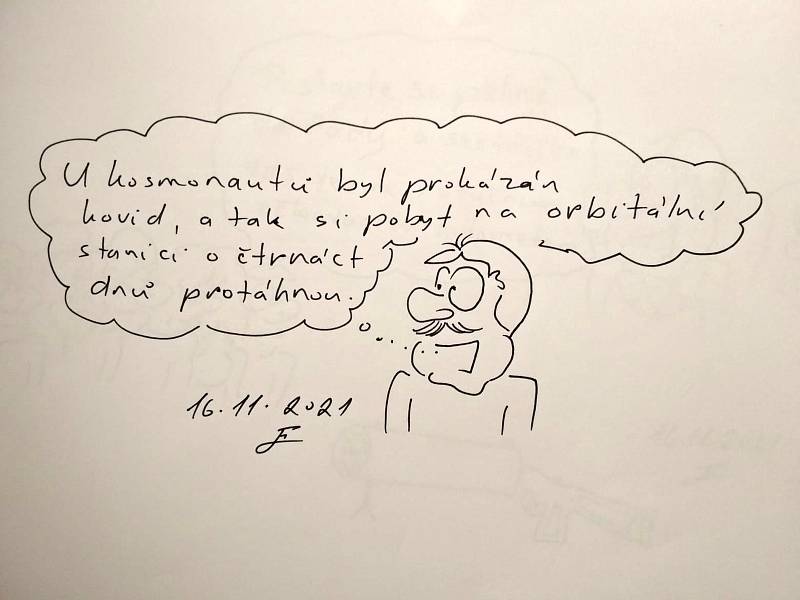 U kosmonautů byl prokázán
kovid, a tak si pobyt na orbitální
stanici o čtrnáct
dnů protáhnou.
16.11.2021